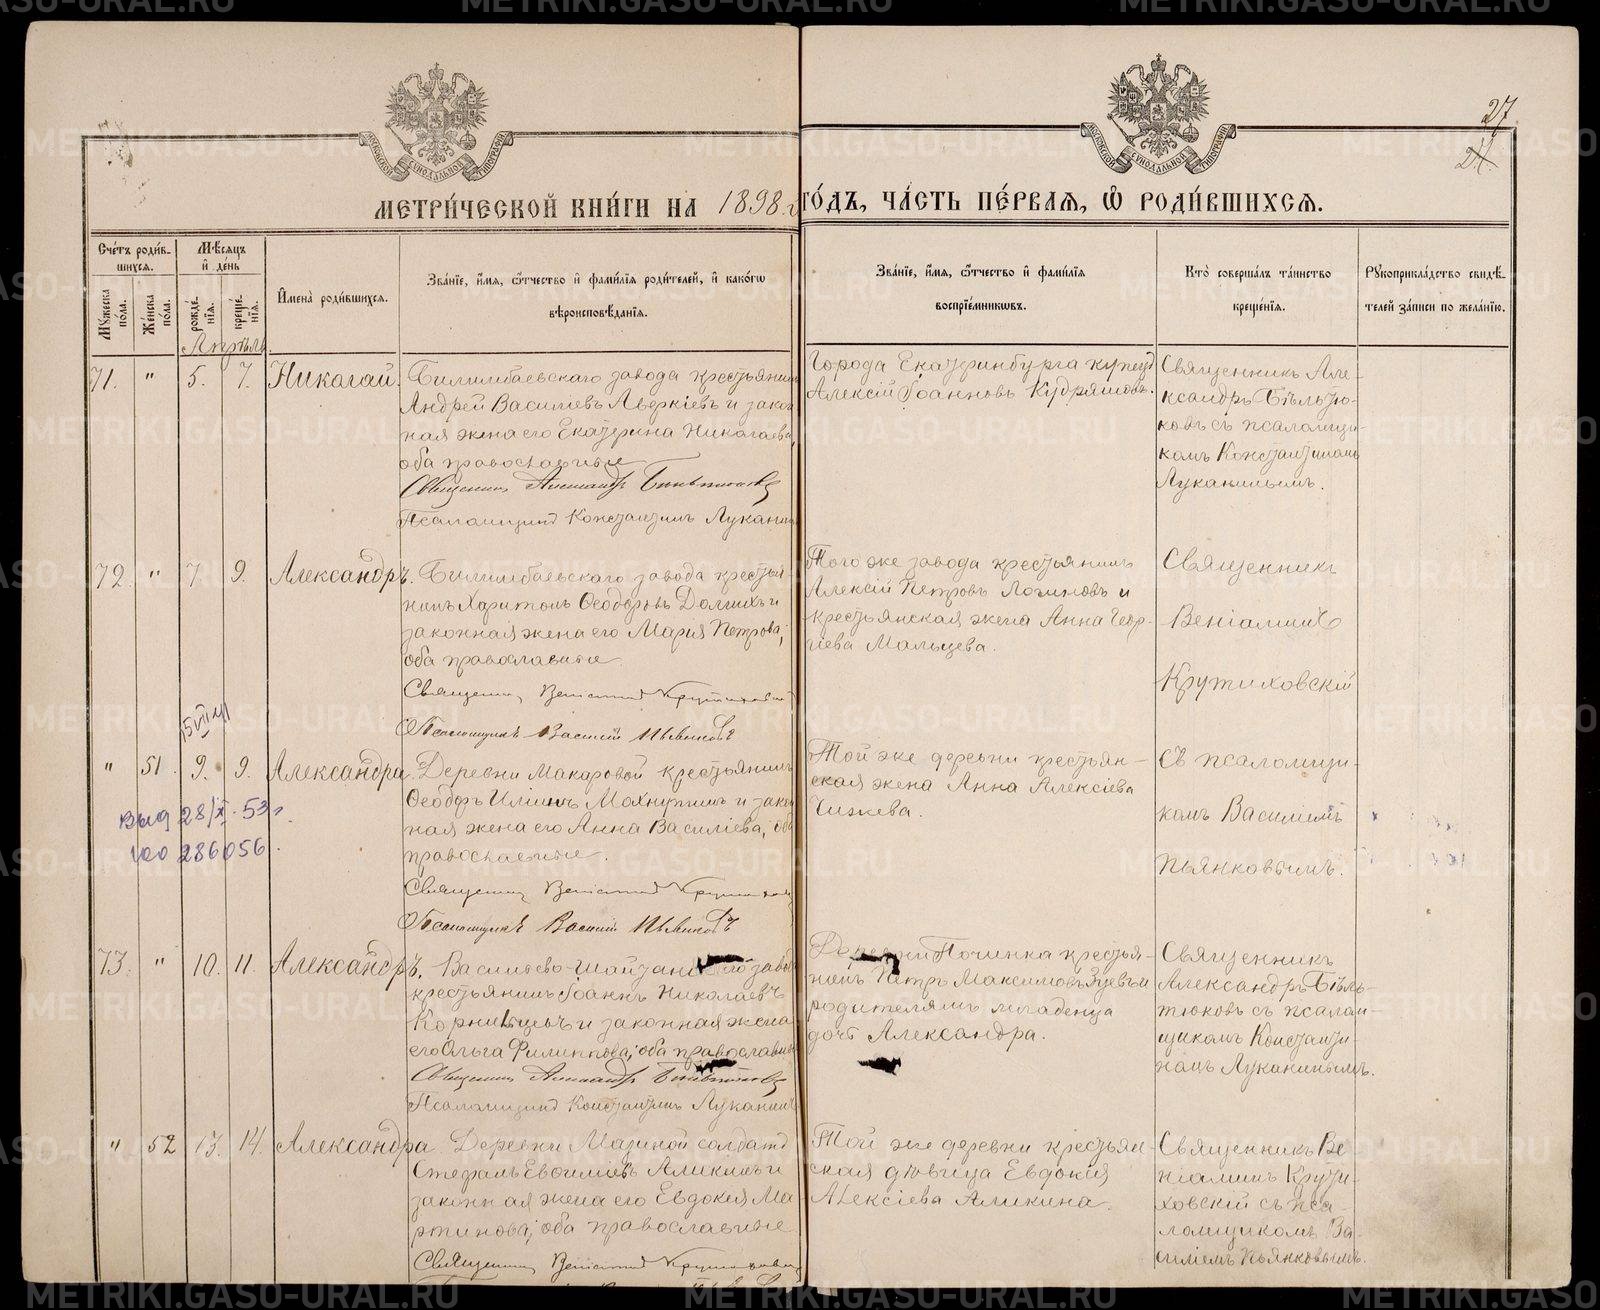 27
24.
МЕТРИ́ЧЕСКОЙ КНИ́ГИ НА 1898 г. ГО́ДЪ, ЧА́СТЬ ПЕ́РВАЯ, Ѡ РОДИ́ВШИХСЯ.
Сче́тъ роди́вшихся.
Мꙋ́жеска по́ла.
Же́нска по́ла.
Мѣ́сяцъ и де́нь
рожде́нїя.
креще́нїя.
И҆мена̀ роди́вшихся.
Зва́нїе, и҆́мя, ѻ҆́тчество и҆ фами́лїя роди́телей, и҆ како́гѡ
вѣроисповѣ́данїя.
Зва́нїе, и҆́мя, ѻ҆́тчество и҆ фами́лїя
воспрїе́мникѡвъ.
Кто̀ соверша́лъ та́инство
креще́нїя.
Рꙋкоприкла́дство свидѣ́-
телей за́писи по жела́нїю.
Апрѣль.
71. " 5. 7. Николай.
Билимбаевскаго завода крестьянинъ
Андрей Василіевъ Аверкіевъ и закон
ная жена его Екатерина Николаева,
оба православные
Священникъ Александръ Бѣльтюковъ
Псаломщикъ Константинъ Луканинъ
Города Екатеринбурга купецъ
Алексій Іоанновъ Кудряшовъ.
Священникъ Але-
ксандръ Бѣльтю-
ковъ съ псаломщи-
комъ Константиномъ
Луканинымъ.
72. " 7 9. Александръ.
Билимбаевскаго завода крестья-
нинъ Харитонъ Ѳеодоровъ Долгихъ и
законная жена его Марія Петрова,
оба православные
Священникъ Веніаминъ Крутиховскій
Псаломщикъ Василій Пьянковъ
Того же завода крестьянинъ
Алексій Петровъ Логиновъ и
крестьянская жена Анна Геор-
гіева Мальцева.
Священникъ
Веніаминъ
Крутиховскій
" 51. 9. 9. Александра.
Деревни Макаровой крестьянинъ
Ѳеодоръ Илiинъ Махнуткинъ и закон
ная жена его Анна Василіева, оба
православные.
Священникъ Веніаминъ Крутиховскій
Псаломщикъ Василій Пьянковъ
Той же деревни крестьян-
ская жена Анна Алексіева
Чижева.
съ псаломщи-
комъ Василіемъ
Пьянковымъ.
Выд 28/XI-53 г.
286056.
73. " 10. 11. Александръ.
Васильево-Шайтанскаго завода
крестьянинъ Іоаннъ Николаевъ
Корнильцевъ и законная жена
его Ольга Филиппова, оба православные
Священникъ Александръ Бѣльтюковъ
Псаломщикъ Константинъ Луканинъ
Деревни Починка крестья-
нинъ Петръ Максимовъ Зуевъ и
родителямъ младенца
дочь Александра.
Священникъ
Александръ Бѣль-
тюковъ съ псалом-
щикомъ Константи-
номъ Луканинымъ.
" 52 13. 14. Александра
Деревни Мазиной солдатъ
Стефанъ Евѳиміевъ Аликинъ и
законная жена его Евдокія Ма
ртинова, оба православные
Священникъ Веніаминъ Крутиховскій
Той же деревни крестьян-
ская дѣвица Евдокія
Алексіева Аликина.
Священникъ Ве
ніаминъ Крути-
ховскій съ пса-
ломщикомъ Ва-
силіемъ Пьянковымъ.
METRIKI.GASO-URAL.RU